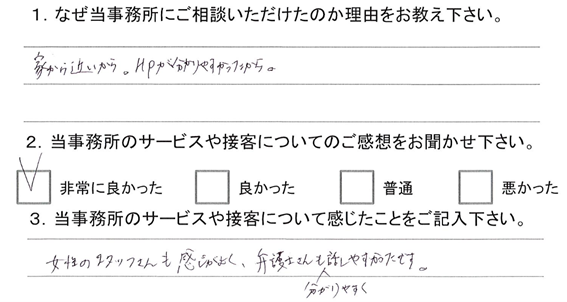 1. なぜ当事務所にご相談いただけたのか理由をお教え下さい。
家から近いから。HPが分かりやすかったから。
2. 当事務所のサービスや接客についてのご感想をお聞かせ下さい。
非常に良かった 良かった 普通 悪かった
3. 当事務所のサービスや接客について感じたことをご記入下さい。
女性のスタッフさんも感じが良く、弁護士さんも話しやすかったです。
分かりやすく